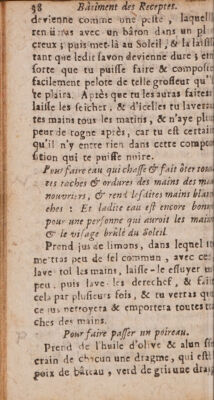 98 Bâtiment des Receptes.
devienne comme one peste, laquell
renüiras avec un bâron dans un pl
creux; puis met-là au Soleil, & la laisse
tant que ledit savon devienne dure; en
sorte que tu puisse faire & composer
facilement pelote de telle grosseur qu'il
te plaira. Après que tu les auras faites
laisse les seicher, & d'icelles tu laveras
tes mains tous les matins, & n'aye plus
peur de rogne après, car tu est certain
qu'il n'y entre rien dans cette compo
sition qui te puisse noire.
Pour faire eau qui chasse & fait ôter toute
tes taches & ordures des mains des ma
nouvriers, & rend lesdites mains blan
ches: Et ladite eau est encore bonne
pour une personne qui auroit les mains
& le visage brûlé du Soleil.
Prend jus de limons, dans lequel tu
mettras peu de sel commun, avec ces
lave toi les mains, laisse-le essuyer un
peu, puis lave-les derechef, & fait
cela par plusieurs fois, & tu verras que
ce jus nettoyera & emportera toutes
ches des mains.
Pour faire passer un poireau.
Prend de l'huile d'olive & alun
crain de chacun une dragme, qui est
poix de bâteau, verd de gris une drag